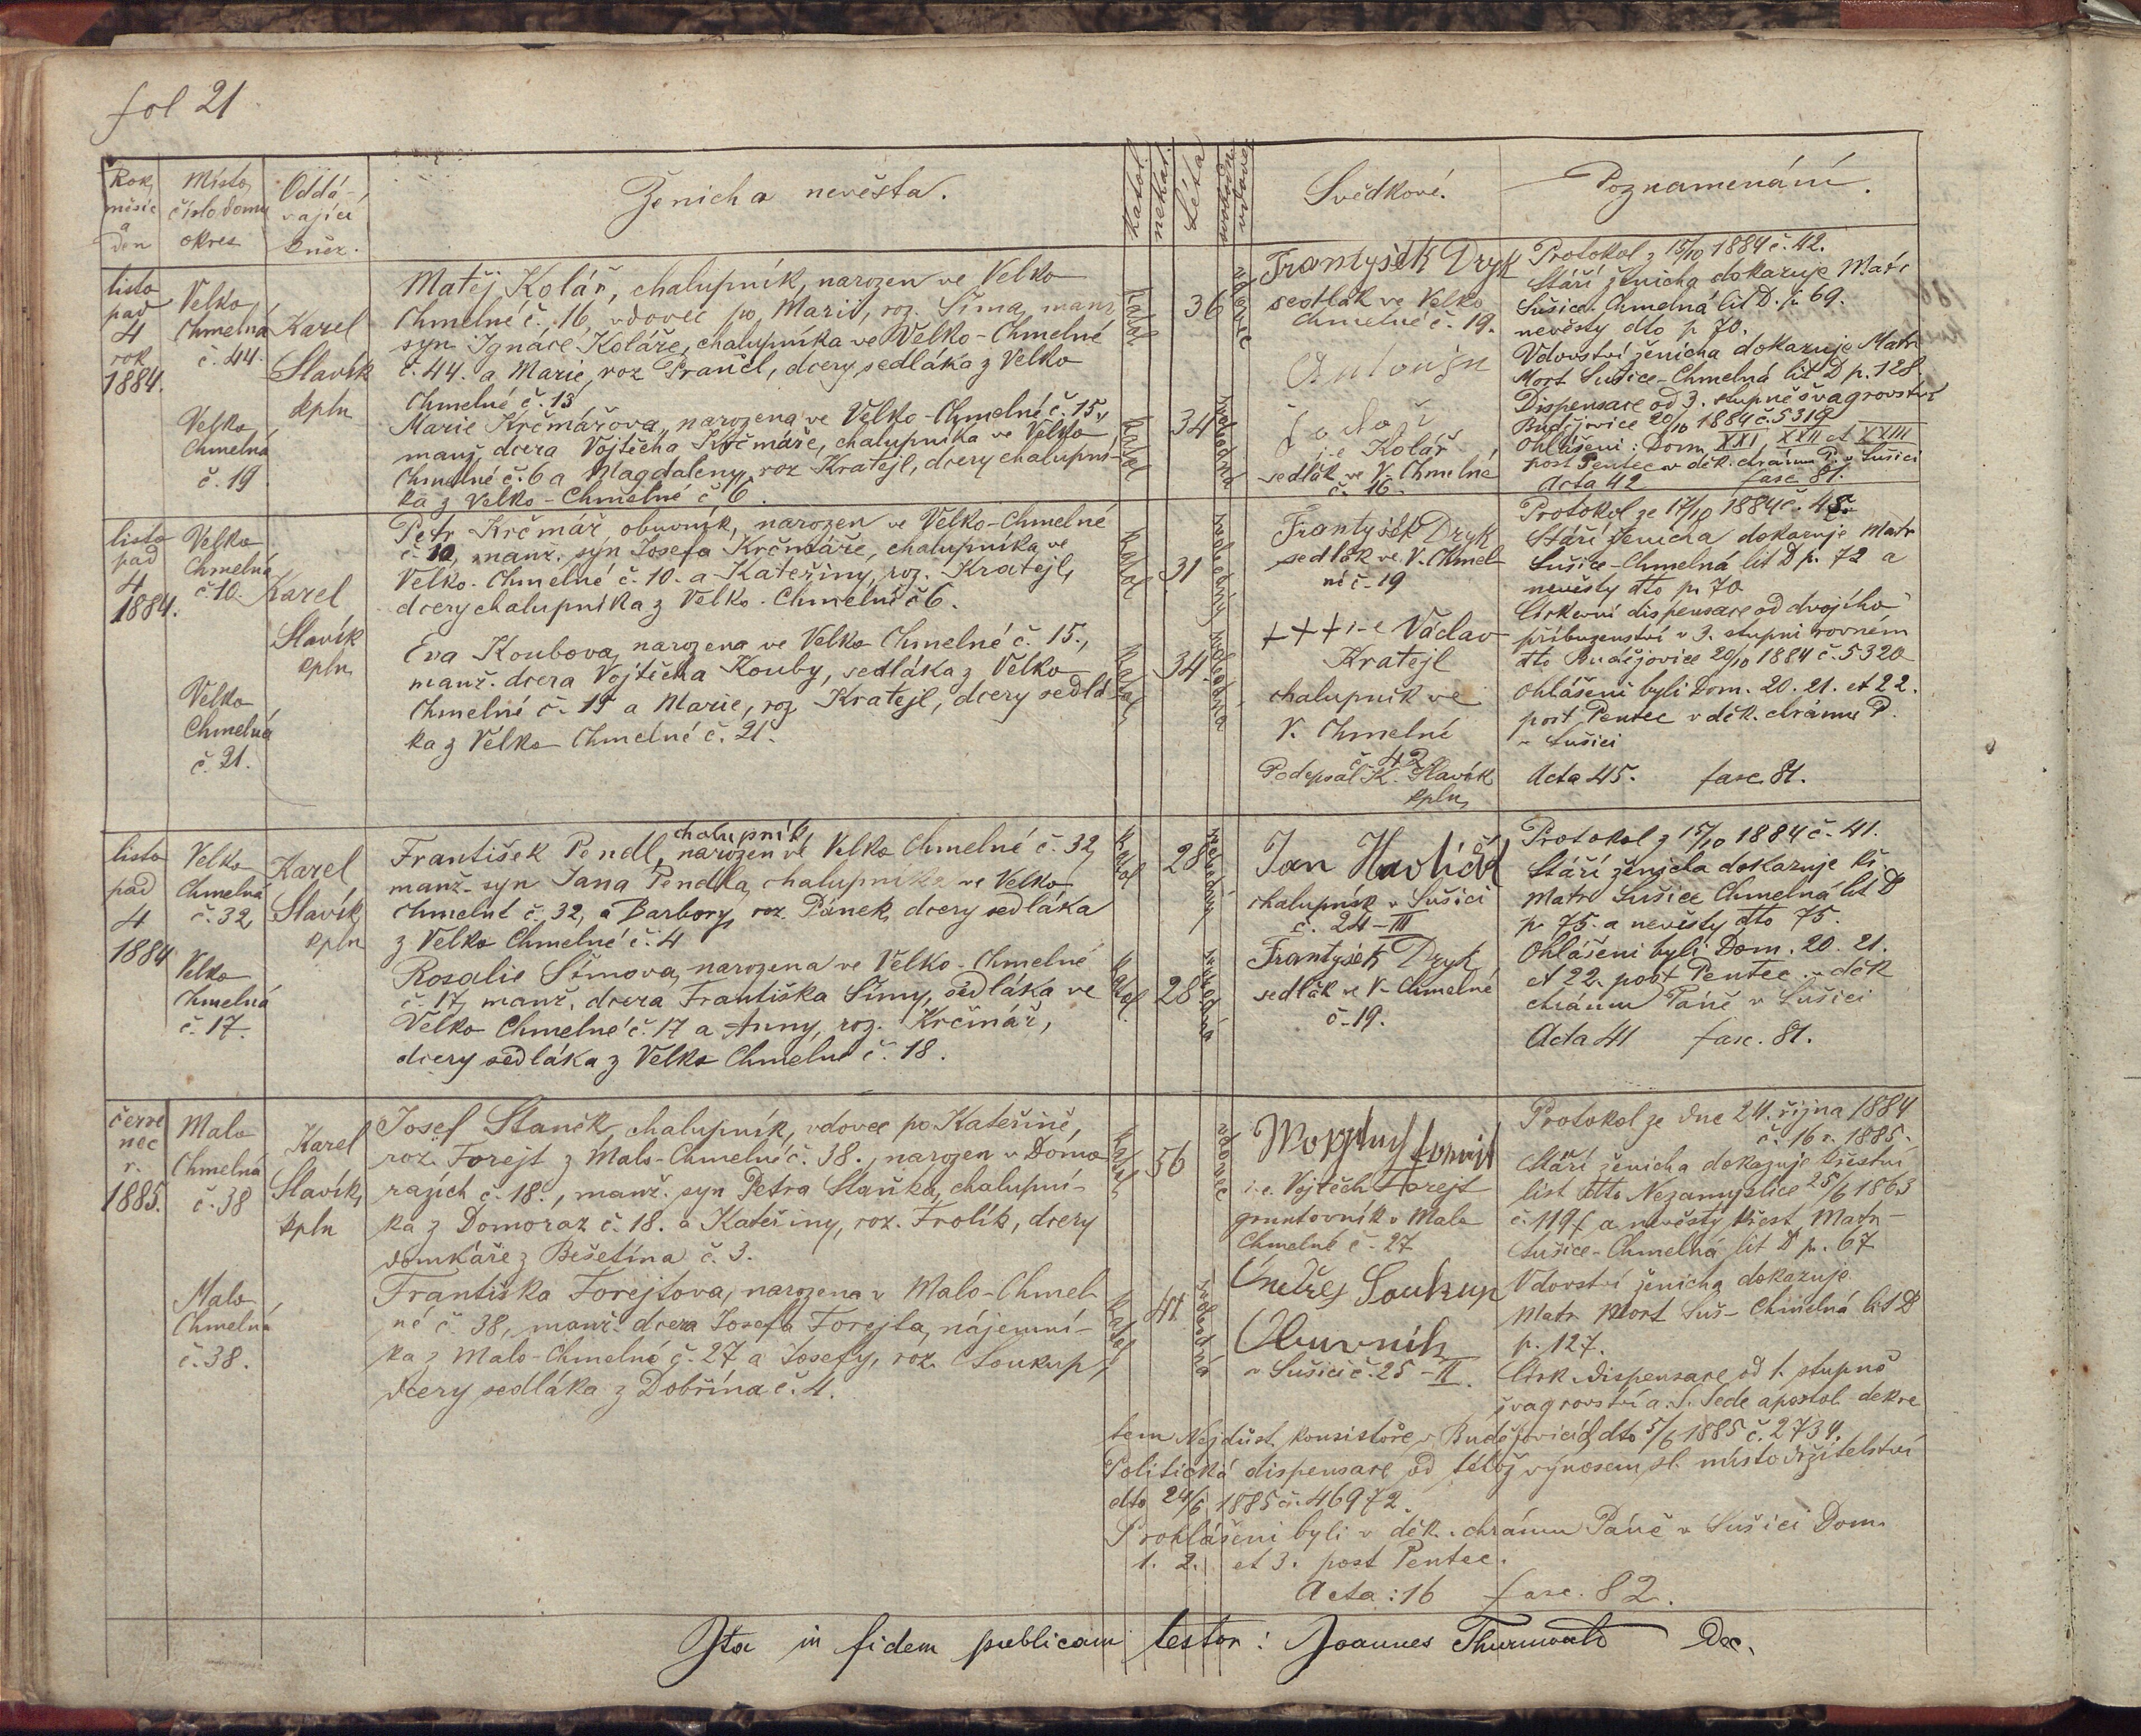 fol 21
Rok, měsíc a den
Místo, číslo domu okres
Oddávající kněz.
Ženich a nevěsta.
katol.
nekat.
Léta
Svědkové.
Poznamenání.
listo
pad
4
rok
1884.
Velko
Chmelná
č. 44.
Velko
Chmelná
č. 19
Karel
Slavík
kpln
Matěj Kolář, chalupník, narozen ve Velko
Chmelné č. 16 vdovec po Marii, roz. Šíma, manž
syn Ignáce Koláře, chalupníka ve Velko-Chmelné
č. 44. a Marie, roz Prančl, dcery sedláka z Velko
Chmelné č. 13
Marie Krčmářova, narozena ve Velko-Chmelné č. 15.,
manž. dcera Vojtěcha Krčmáře, chalupníka ve Velko
Chmelné č. 6 a Magdaleny, roz Kratejl, dcery chalupní-
ka z Velko-Chmelné č. 6.
katol
36
vdovec
katol
34
svobodná
Frantyšek Dryk
sedlák ve Velko
Chmelné č. 19.
Antonjn
i.e. Kolář
sedlák ve V. Chmelné
č. 16.
Protokol z 15/10 1884 č. 42.
Stáří ženicha dokazuje Matr
Sušice-Chmelná lit D. p. 69.
nevěsty dto p 70.
Vdovství ženicha dokazuje Matr
Mort Sušice-Chmelná lit D p. 128.
Dispensace od 3. stupně švagrovství
Budějovice 20/10 1884 č. 5319
Ohlášeni: Dom XXI, XXII et XXIII
post Pentec v děk. chrámu P. v Sušici
Acta 42 fasc 81.
listo
pad
4
1884.
Velko
Chmelná
č. 10.
Velko
Chmelná
č. 21.
Karel
Slavík
kpln
Petr Krčmář obuvník, narozen ve Velko-Chmelné
č. 10, manž. syn Josefa Krčmáře, chalupníka ve
Velko-Chmelné č. 10. a Kateřiny, roz. Kratejl,
dcery chalupníka z Velko-Chmelné č 6.
Eva Koubova, narozena ve Velko Chmelné č. 15.,
manž. dcera Vojtěcha Kouby, sedláka z Velko
Chmelné č. 15 a Marie, roz Kratejl, dcery sedlá
ka z Velko Chmelné č. 21.
katol
31
svobodný
katol
34.
svobodná
Frantyšek Dryk
sedlák ve V. Chmel
né č. 19
+++ i-e Václav
Kratejl
chalupník ve
V. Chmelné
č. 42
Podepsal K. Slavík
kpln
Protokol ze 17/10 1884 č. 45.
Stáří ženicha dokazuje Matr
Sušice-Chmelná lit D p. 72 a
nevěsty dto p. 70
Církevní dispensace od dvojího
příbuzenství v 3. stupni rovném
dto Budějovice 20/10 1884 č. 5320
Ohlášeni byli Dom. 20. 21. et 22.
post Pentec v děk. chrámu P.
v Sušici
Acta 45. fasc. 81.
listo
pad
4
1884
Velko
Chmelná
č. 32
Velko
Chmelná
č. 17.
Karel
Slavík
kpln
chalupník
František Pendl, narozen ve Velko Chmelné č. 32,
manž. syn Jana Pendla, chalupníka ve Velko
Chmelné č. 32, a Barbory, roz. Pánek, dcery sedláka
z Velko Chmelné č. 4
Rosalie Šímova, narozena ve Velko-Chmelné
č. 17, manž. dcera Františka Šímy, sedláka ve
Velko Chmelné č. 17 a Anny, roz. Krčmář,
dcery sedláka z Velko Chmelné č. 18.
katol
28
svobodný
katol.
28
svobodná
Jan Havlíček
chalupník v Sušici
č. 24-III
Frantyšek Dryk
sedlák ve V-Chmelné
č. 19.
Protokol z 15/10 1884 č. 41.
Stáří ženicha dokazuje kř.
matr Sušice Chmelná lit D
p. 75. a nevěsty dto 75.
Ohlášeni byli Dom. 20. 21.
et 22. post Pentec. v děk
chrámu Páně v Sušici
Acta 41 fasc. 81.
červe
nec
r.
1885.
Malo
Chmelná
č. 38
Malo
Chmelná
č. 38.
Karel
Slavík,
kpln
Josef Staněk, chalupník, vdovec po Kateřině,
roz. Forejt z Malo-Chmelné č. 38., narozen v Domo
razích č. 18., manž. syn Petra Staňka, chalupní-
ka z Domoraz č. 18. a Kateřiny, roz. Frolík, dcery
domkáře z Bešetína č. 3.
Františka Forejtova, narozena v Malo-Chmel
né č. 38, manž. dcera Josefa Forejta, nájemní-
ka z Malo-Chmelné č. 27 a Josefy, roz. Soukup,
dcery sedláka z Dobřína č. 4.
katol
56
vdovec
katol
41.
svobodná
i.e. Vojtěch Forejt
gruntovník v Malo
Chmelné č. 27
Ondřej Soukup
Obuvník
v Sušici č. 25-II.
Protokol ze dne 24. října 1884
č. 16 r. 1885.
Stáří ženicha dokazuje křestní
list dto Nezamyslice 25/6 1863
č. 119/ a nevěsty křest Matr-
Sušice-Chmelná lit D p. 67
Vdovství ženicha dokazuje
Matr Mort Suš-Chmelná lit D
p. 127.
Círk. dispensace od 1. stupně
švagrovství a. S. Sede apostol. dekre
tem Nejdůst. konsistoře v Budějovicích dto 5/6 1885 č. 2734.
Politická dispensace od téhož výnosem sl. místodržitelství
dto 24/6 1885 č. 46972.
Prohlášeni byli v děk. chrámu Páně v Sušici Dom.
1. 2. et 3. post Pentec.
Acta: 16 fasc. 82.
Ita in fidem publicam testor: Joannes Dec.